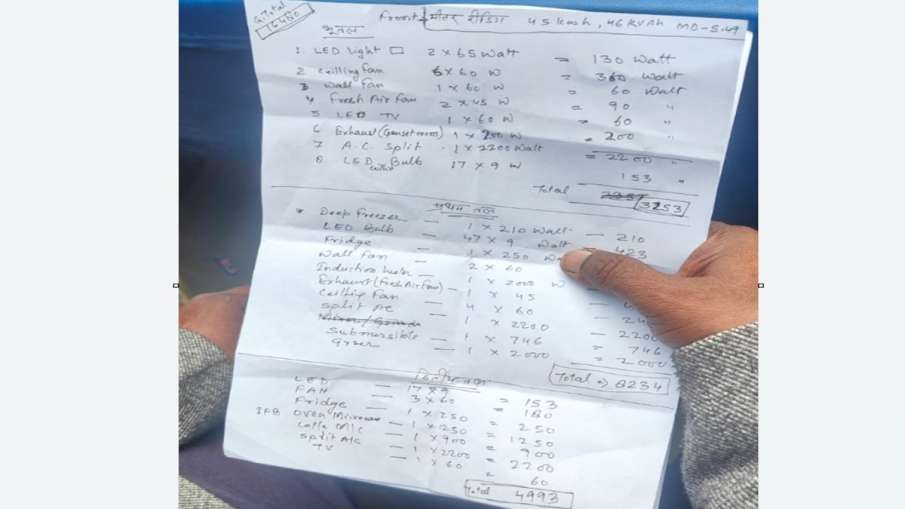 G. Total
16480
Front मीटर रीडिंग 45 kWh, 46 KVAh MD-5.49
भूतल
1. LED Light 2 x 65 Watt = 130 Watt
2 Ceilling Fan 6 x 60 W = 360 Watt
3 Wall Fan 1 x 60 W = 60 Watt
4 Fresh Air Fan 2 x 45 W = 90 "
5 LED TV 1 x 60 W = 60 "
6 Exhaust (Genset room) 1 x 200 W = 200 "
7 A.C. Split 1 x 2200 Watt = 2200 "
8 LED Bulb 17 x 9 W 153 "
Total 3253
प्रथम तल
Deep Freezer — 1 x 210 Watt — 210
LED Bulb — 47 x 9 Watt — 423
Fridge — 1 x 250
Wall Fan — 2 x 60
Induction — 1 x 2000 W
Exhaust (Fresh Air Fan) — 1 x 45
Ceilling Fan — 4 x 60
Split AC — 1 x 2200 — 2200
Submersible — 1 x 746 = 746
Gyser — 1 x 2000 = 2000
Total => 8234
LED — 17 x 9 = 153
FAN — 3 x 60 = 180
Fridge — 1 x 250 = 250
IFB Oven — 1 x 1250 = 1250
M/C — 1 x 900 = 900
Split A/c — 1 x 2200 = 2200
TV — 1 x 60 = 60
Total 4993